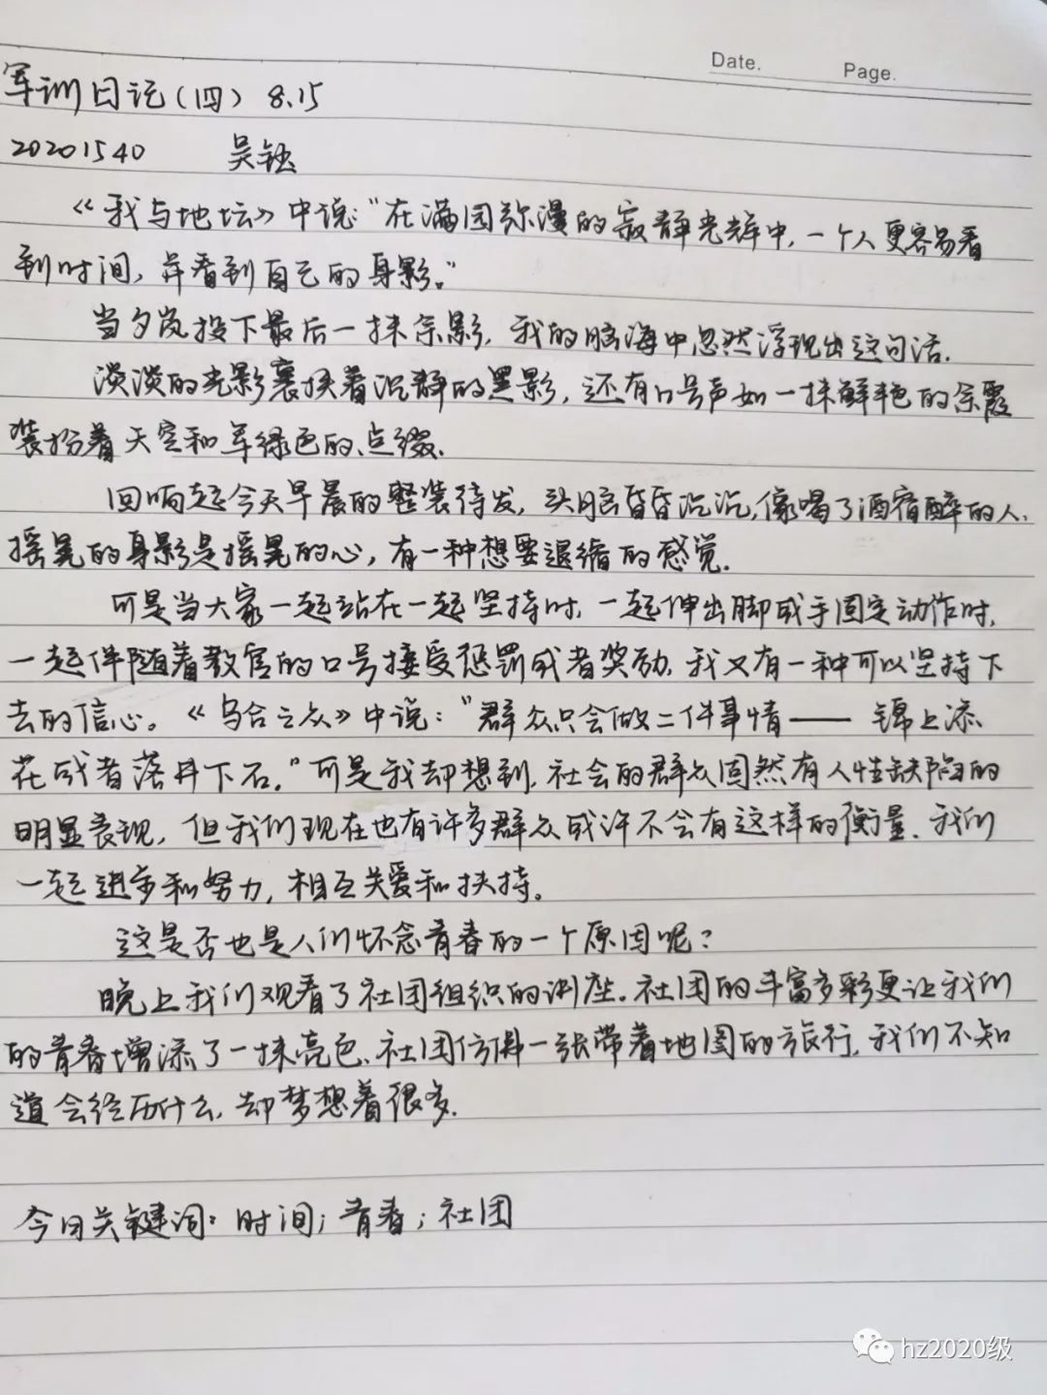 Date.    Page.
军训日记(四) 8.15
20201540    吴铉
《我与地坛》中说:"在满园弥漫的寂静光辉中,一个人更容易看
到时间,并看到自己的身影。"
当夕岚投下最后一抹余影,我的脑海中忽然浮现出这句话.
淡淡的光影裹挟着沉静的黑影,还有口号声如一抹鲜艳的余霞
装扮着天空和军绿色的点缀.
回响起今天早晨的整装待发,头脑昏昏沉沉,像喝了酒宿醉的人,
摇晃的身影是摇晃的心,有一种想要退缩的感觉.
可是当大家一起站在一起坚持时,一起伸出脚或手固定动作时,
一起伴随着教官的口号接受惩罚或者奖励,我又有一种可以坚持下
去的信心。《乌合之众》中说:"群众只会做二件事情——锦上添
花或者落井下石."可是我却想到,社会的群众固然有人性缺陷的
明显表现,但我们现在也有许多群众或许不会有这样的衡量.我们
一起进步和努力,相互关爱和扶持。
这是否也是人们怀念青春的一个原因呢?
晚上我们观看了社团组织的讲座.社团的丰富多彩更让我们
的青春增添了一抹亮色.社团仿佛一张带着地图的旅行,我们不知
道会经历什么,却梦想着很多.
今日关键词:时间;青春;社团
hz2020级